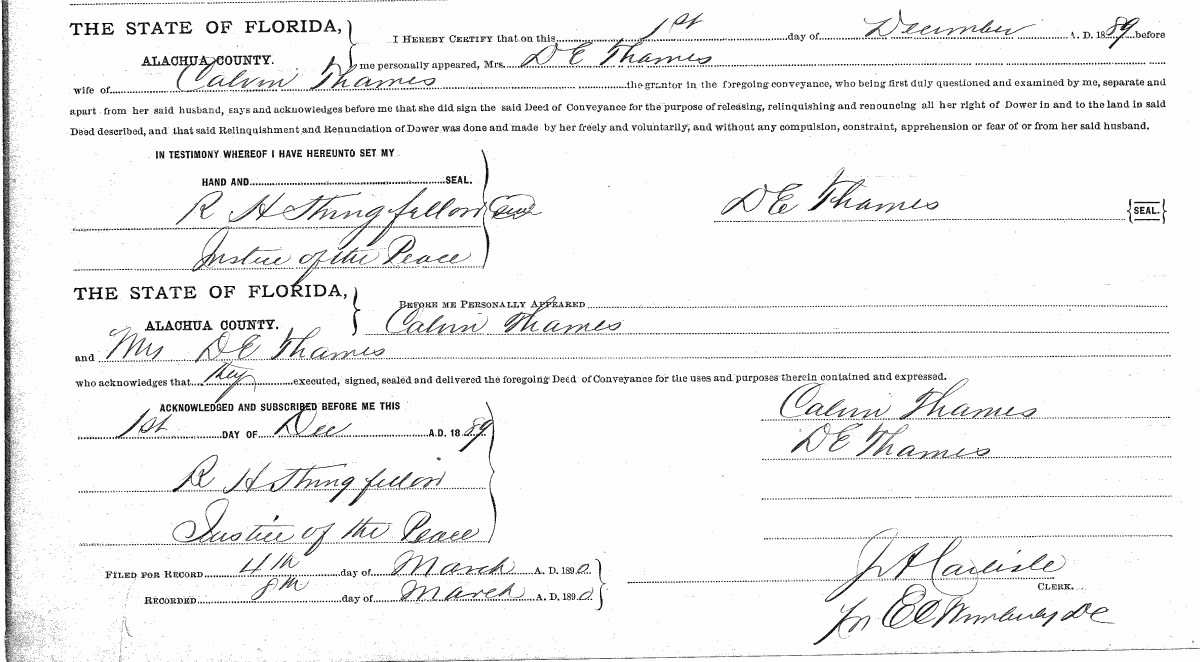 THE STATE OF FLORIDA,
I HEREBY CERTIFY that on this 1st day of December A. D. 1889 before
ALACHUA COUNTY. me personally appeared, Mrs. D E Thames
wife of Calvin Thames the grantor in the foregoing conveyance, who being first duly questioned and examined by me, separate and
apart from her said husband, says and acknowledges before me that she did sign the said Deed of Conveyance for the purpose of releasing, relinquishing and renouncing all her right of Dower in and to the land in said
Deed described, and that said Relinquishment and Renunciation of Dower was done and made by her freely and voluntarily, and without any compulsion, constraint, apprehension or fear of or from her said husband.
IN TESTIMONY WHEREOF I HAVE HEREUNTO SET MY
HAND AND SEAL.
R H Stringfellow Seal D E Thames {SEAL.}
Justice of the Peace
THE STATE OF FLORIDA,
BEFORE ME PERSONALLY APPEARED
ALACHUA COUNTY. Calvin Thames
and Mrs D E Thames
who acknowledges that they executed, signed, sealed and delivered the foregoing Deed of Conveyance for the uses and purposes therein contained and expressed.
ACKNOWLEDGED AND SUBSCRIBED BEFORE ME THIS
1st DAY OF Dec A.D. 1889
R H Stringfellow
Justice of the Peace
Calvin Thames
D E Thames
FILED FOR RECORD 4th day of March A. D. 1890
RECORDED 8th day of March A. D. 1890
J A Carlisle
CLERK.
Per E C Wimberly DC